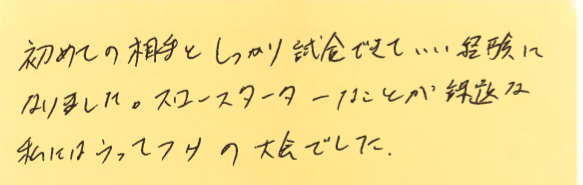 初めての相手としっかり試合できていい経験に
なりました。スロースターターなことが課題な
私にはうってつけの大会でした。